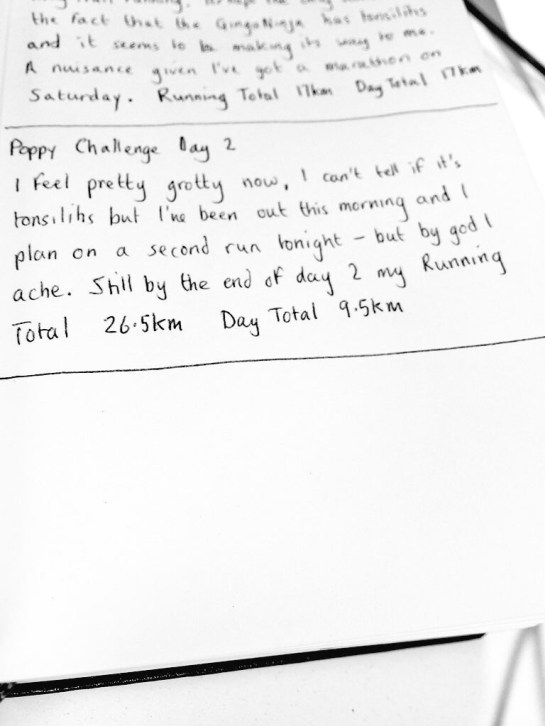 running.
the fact that the GingaNinja has tonsilitis
and it seems to be making its way to me.
A nuisance given I've got a marathon on
Saturday. Running Total 17km Day Total 17km
Poppy Challenge Day 2
I feel pretty grotty now, I can't tell if it's
tonsilitis but I've been out this morning and I
plan on a second run tonight - but by god I
ache. Still by the end of day 2 my Running
Total 26.5km Day Total 9.5km